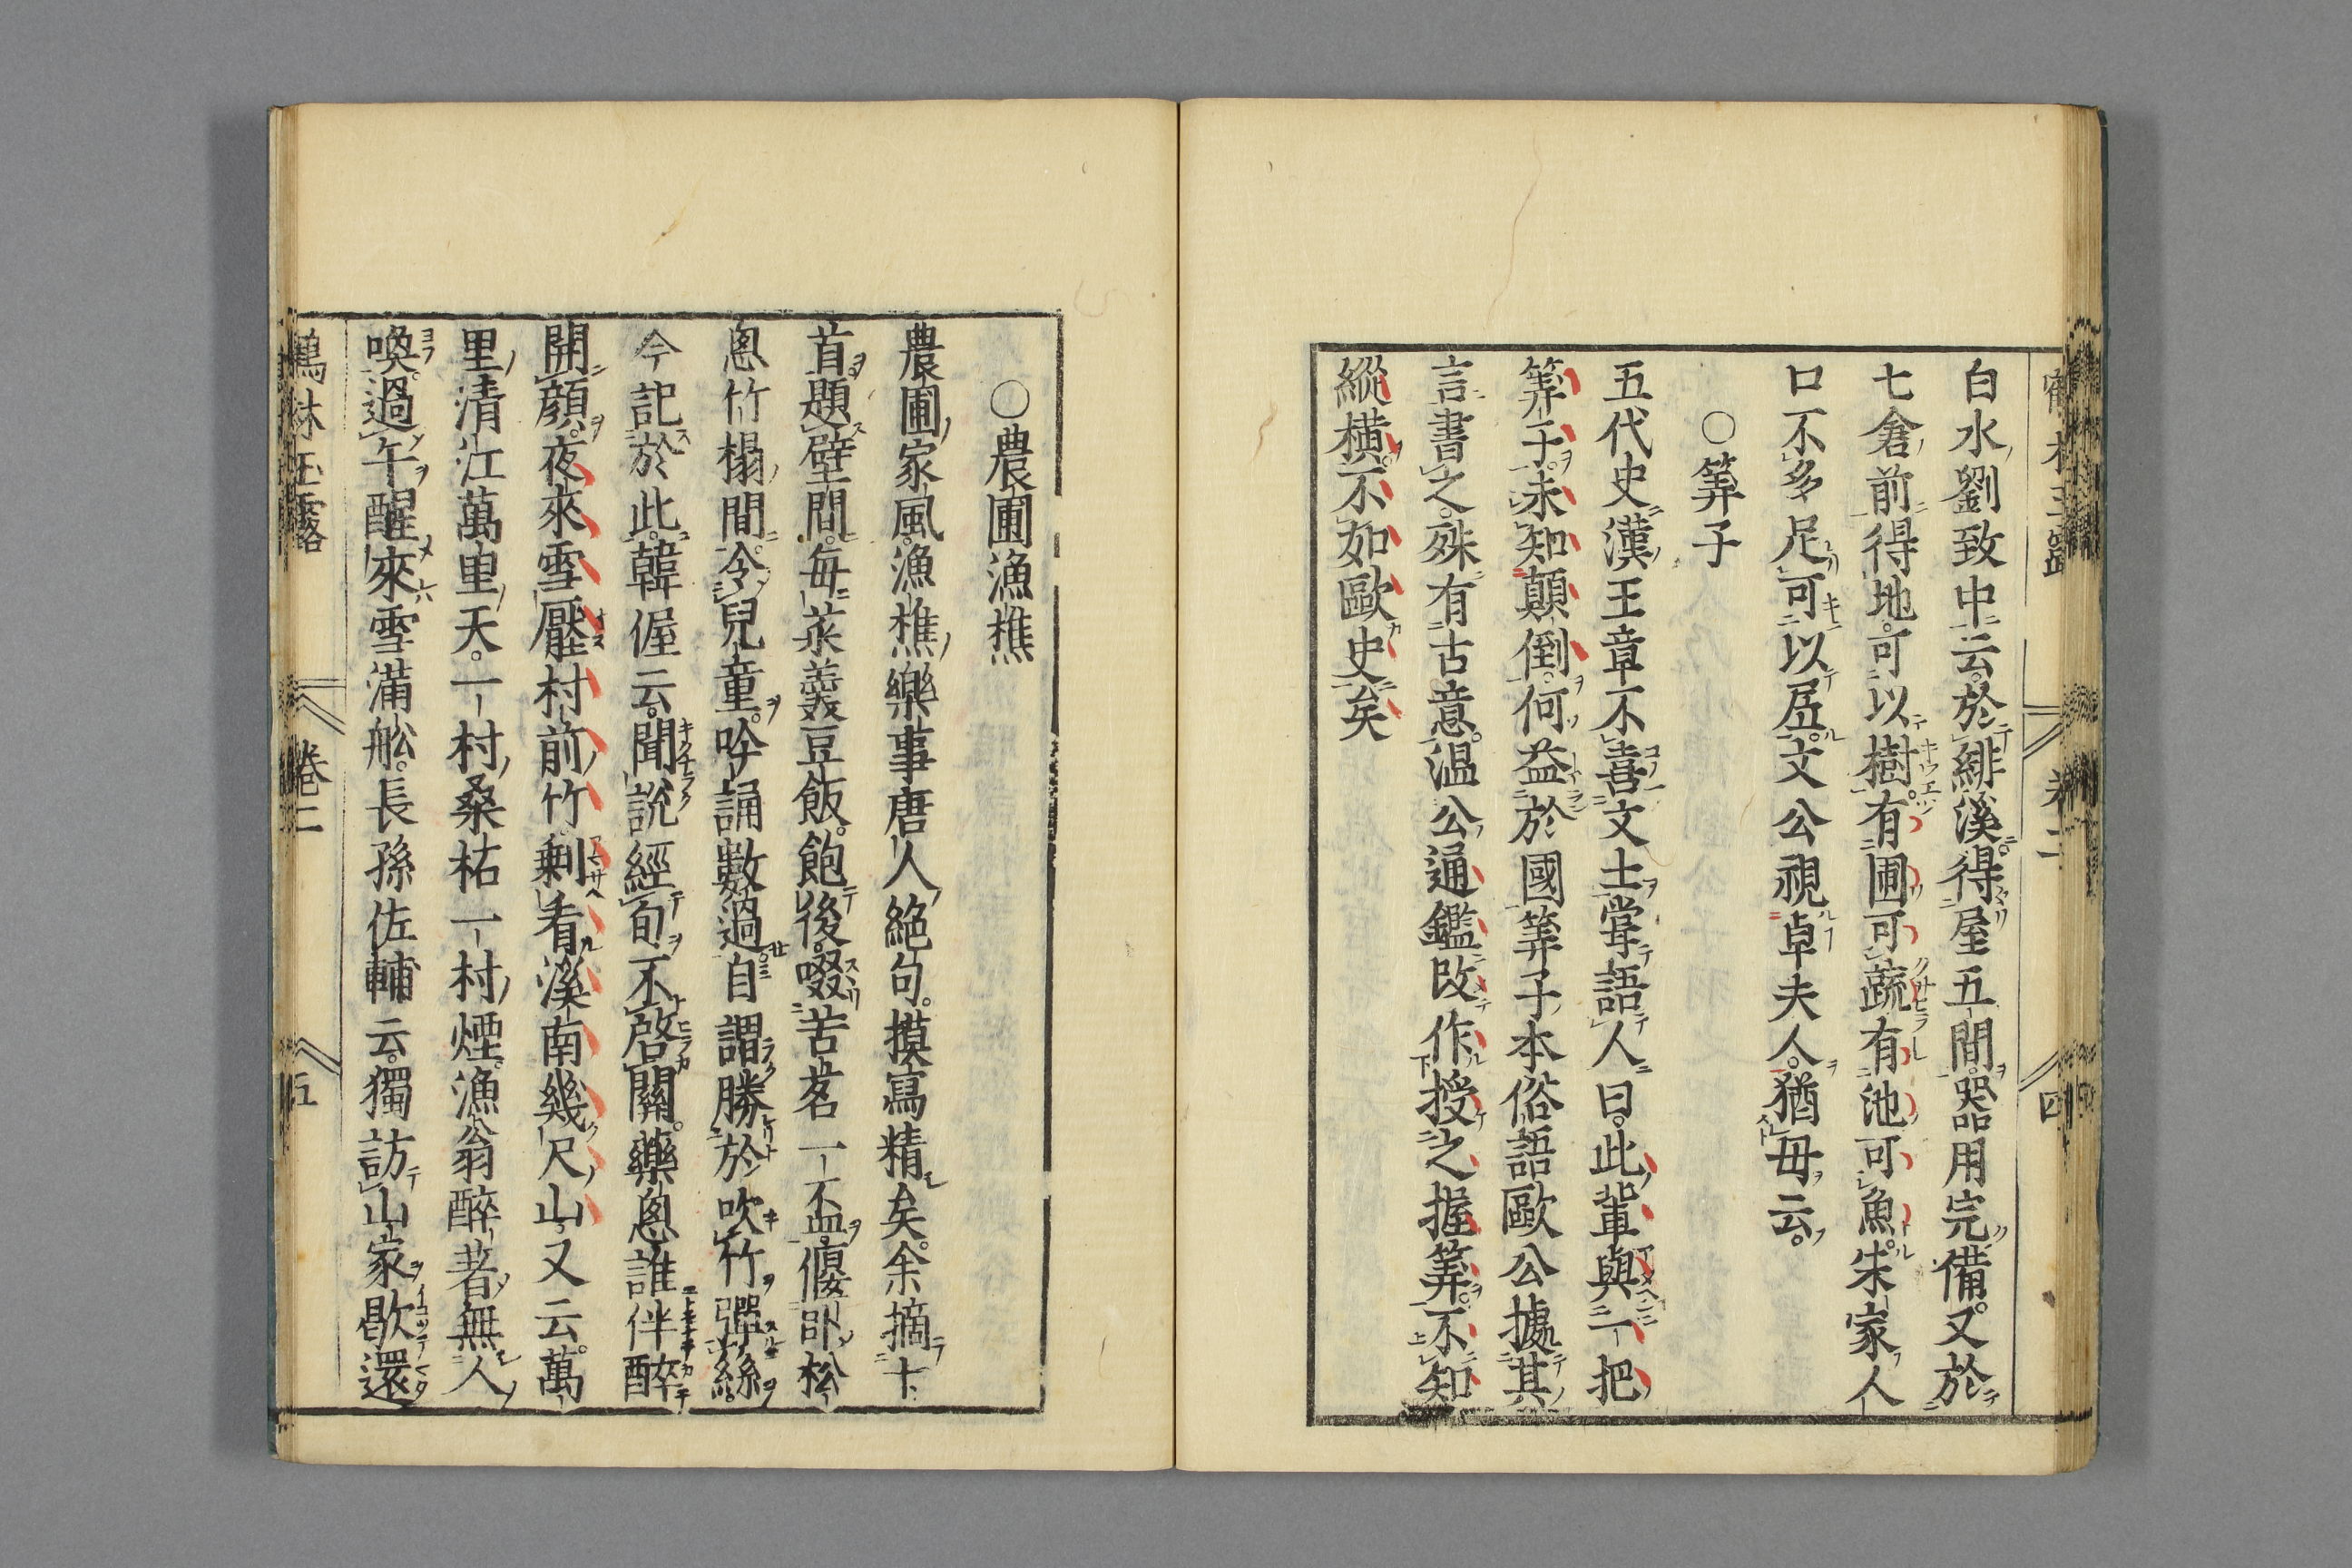 白水劉致中云於緋溪得屋五間器用完備又於
七倉前得地可以樹有圃可蔬有池可魚朱家人
口不多尼可以居文公視卓夫人猶毋云
○筭子
五代史漢王章不喜文士甞語人曰此輩與一把
筭子未知顛倒何益於國筭子本俗語歐公據其
言書之殊有古意温公通鑑改作授之握筭不知
縱横不如歐史矣
○農圃漁樵
農圃家風漁樵樂事唐人絶句摸寫精矣余摘十
首題壁間毎菜羹豆飯飽後啜苦茗一盃偃卧松
窻竹榻間令兒童吟誦數過自謂勝於吹竹彈絲
今記於此韓偓云聞說經旬不啓關藥窻誰伴醉
開顔夜來雪壓村前竹剩看溪南幾尺山又云萬
里清江萬里天一村桑柘一村煙漁翁醉著無人
喚過午醒來雪滿舩長孫佐輔云獨訪山家歇還
鶴林玉露 卷二 五